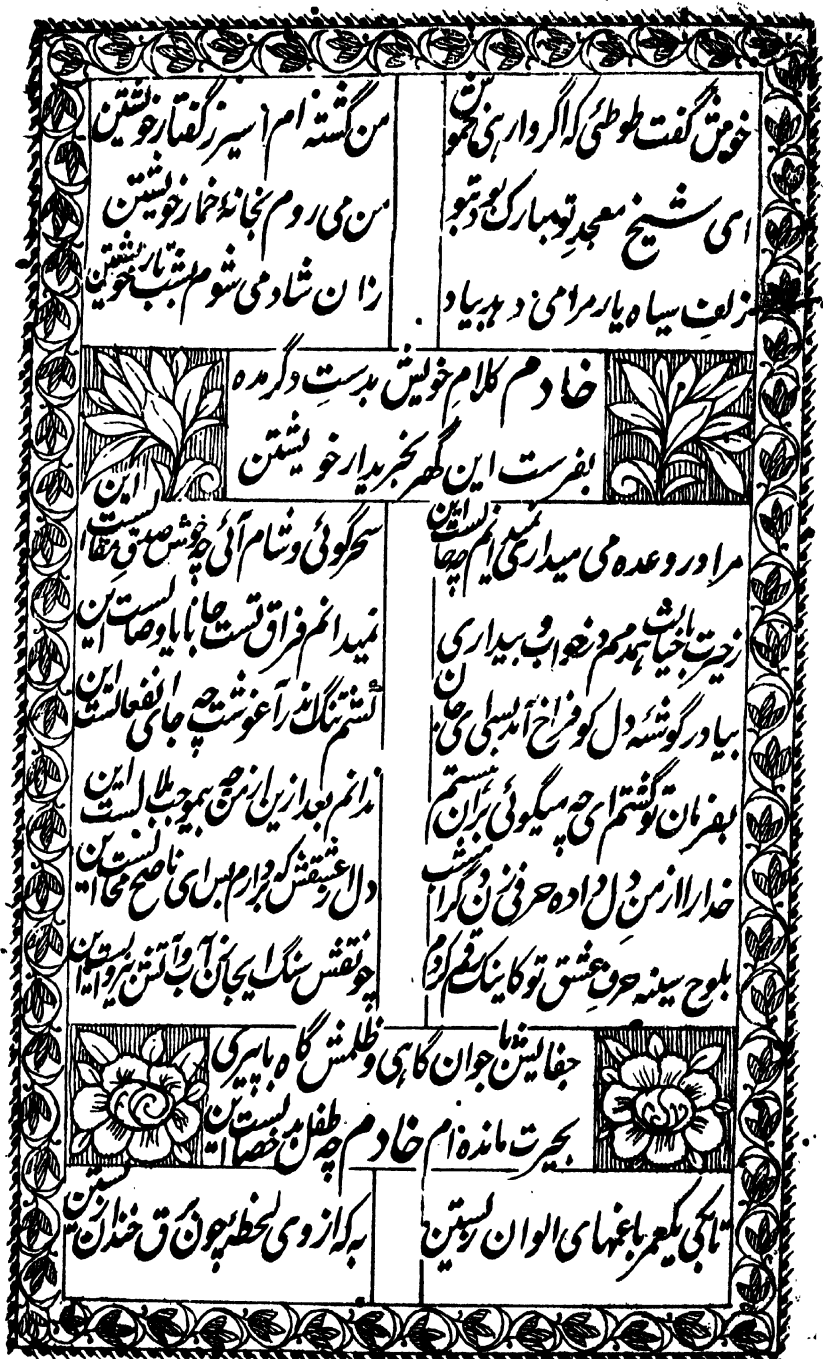 خوش گفت طوطئی که اگر وارهی خموش
من گشته ام اسیر ز گفتار خویشتن
ای شیخ مسجدِ تو مبارک بود بتو
من می روم بخانهٔ خمار خویشتن
زلفِ سیاه یار مرا می دهد بیاد
زان شاد می شوم بشب تار خویشتن
خادم کلامِ خویش بدستِ دگر مده
بفرست این گهر بخریدار خویشتن
مرا در وعده می میداری نمیدانم چه حالست این
سحر گوئی و شام آئی چه خوش صدقِ مقالست این
ز حیرت با خیالت همدمم در خواب و بیداری
نمیدانم فراق تست جانا یا وصالست این
بیا در گوشئه دل کو فراخ آمد بسی ای جان
نشستم تنگ اندر آغوشت چه جای انفعالست این
بفرمان تو گشتم ای چه میگوئی بران بستم
ندانم بعد ازین از من چه بیموجب ملالست این
خدارا از من دل داده حرفی زن دگر امشب
دل از عشقش که بردارم بس ای ناصح محالست این
بلوح سینه حرفِ عشق تو کاینک رقم کردم
چو نقش سنگ ایجان آب و آتش بی زوالست این
جفایش با جوان گاهی و ظلمش گاه با پیری
بحیرت مانده ام خادم چه طفل بد خصالست این
تا بکی یکعمر با غمهای الوان زیستن
به که از وی لحظهٔ چون برق خندان زیستن